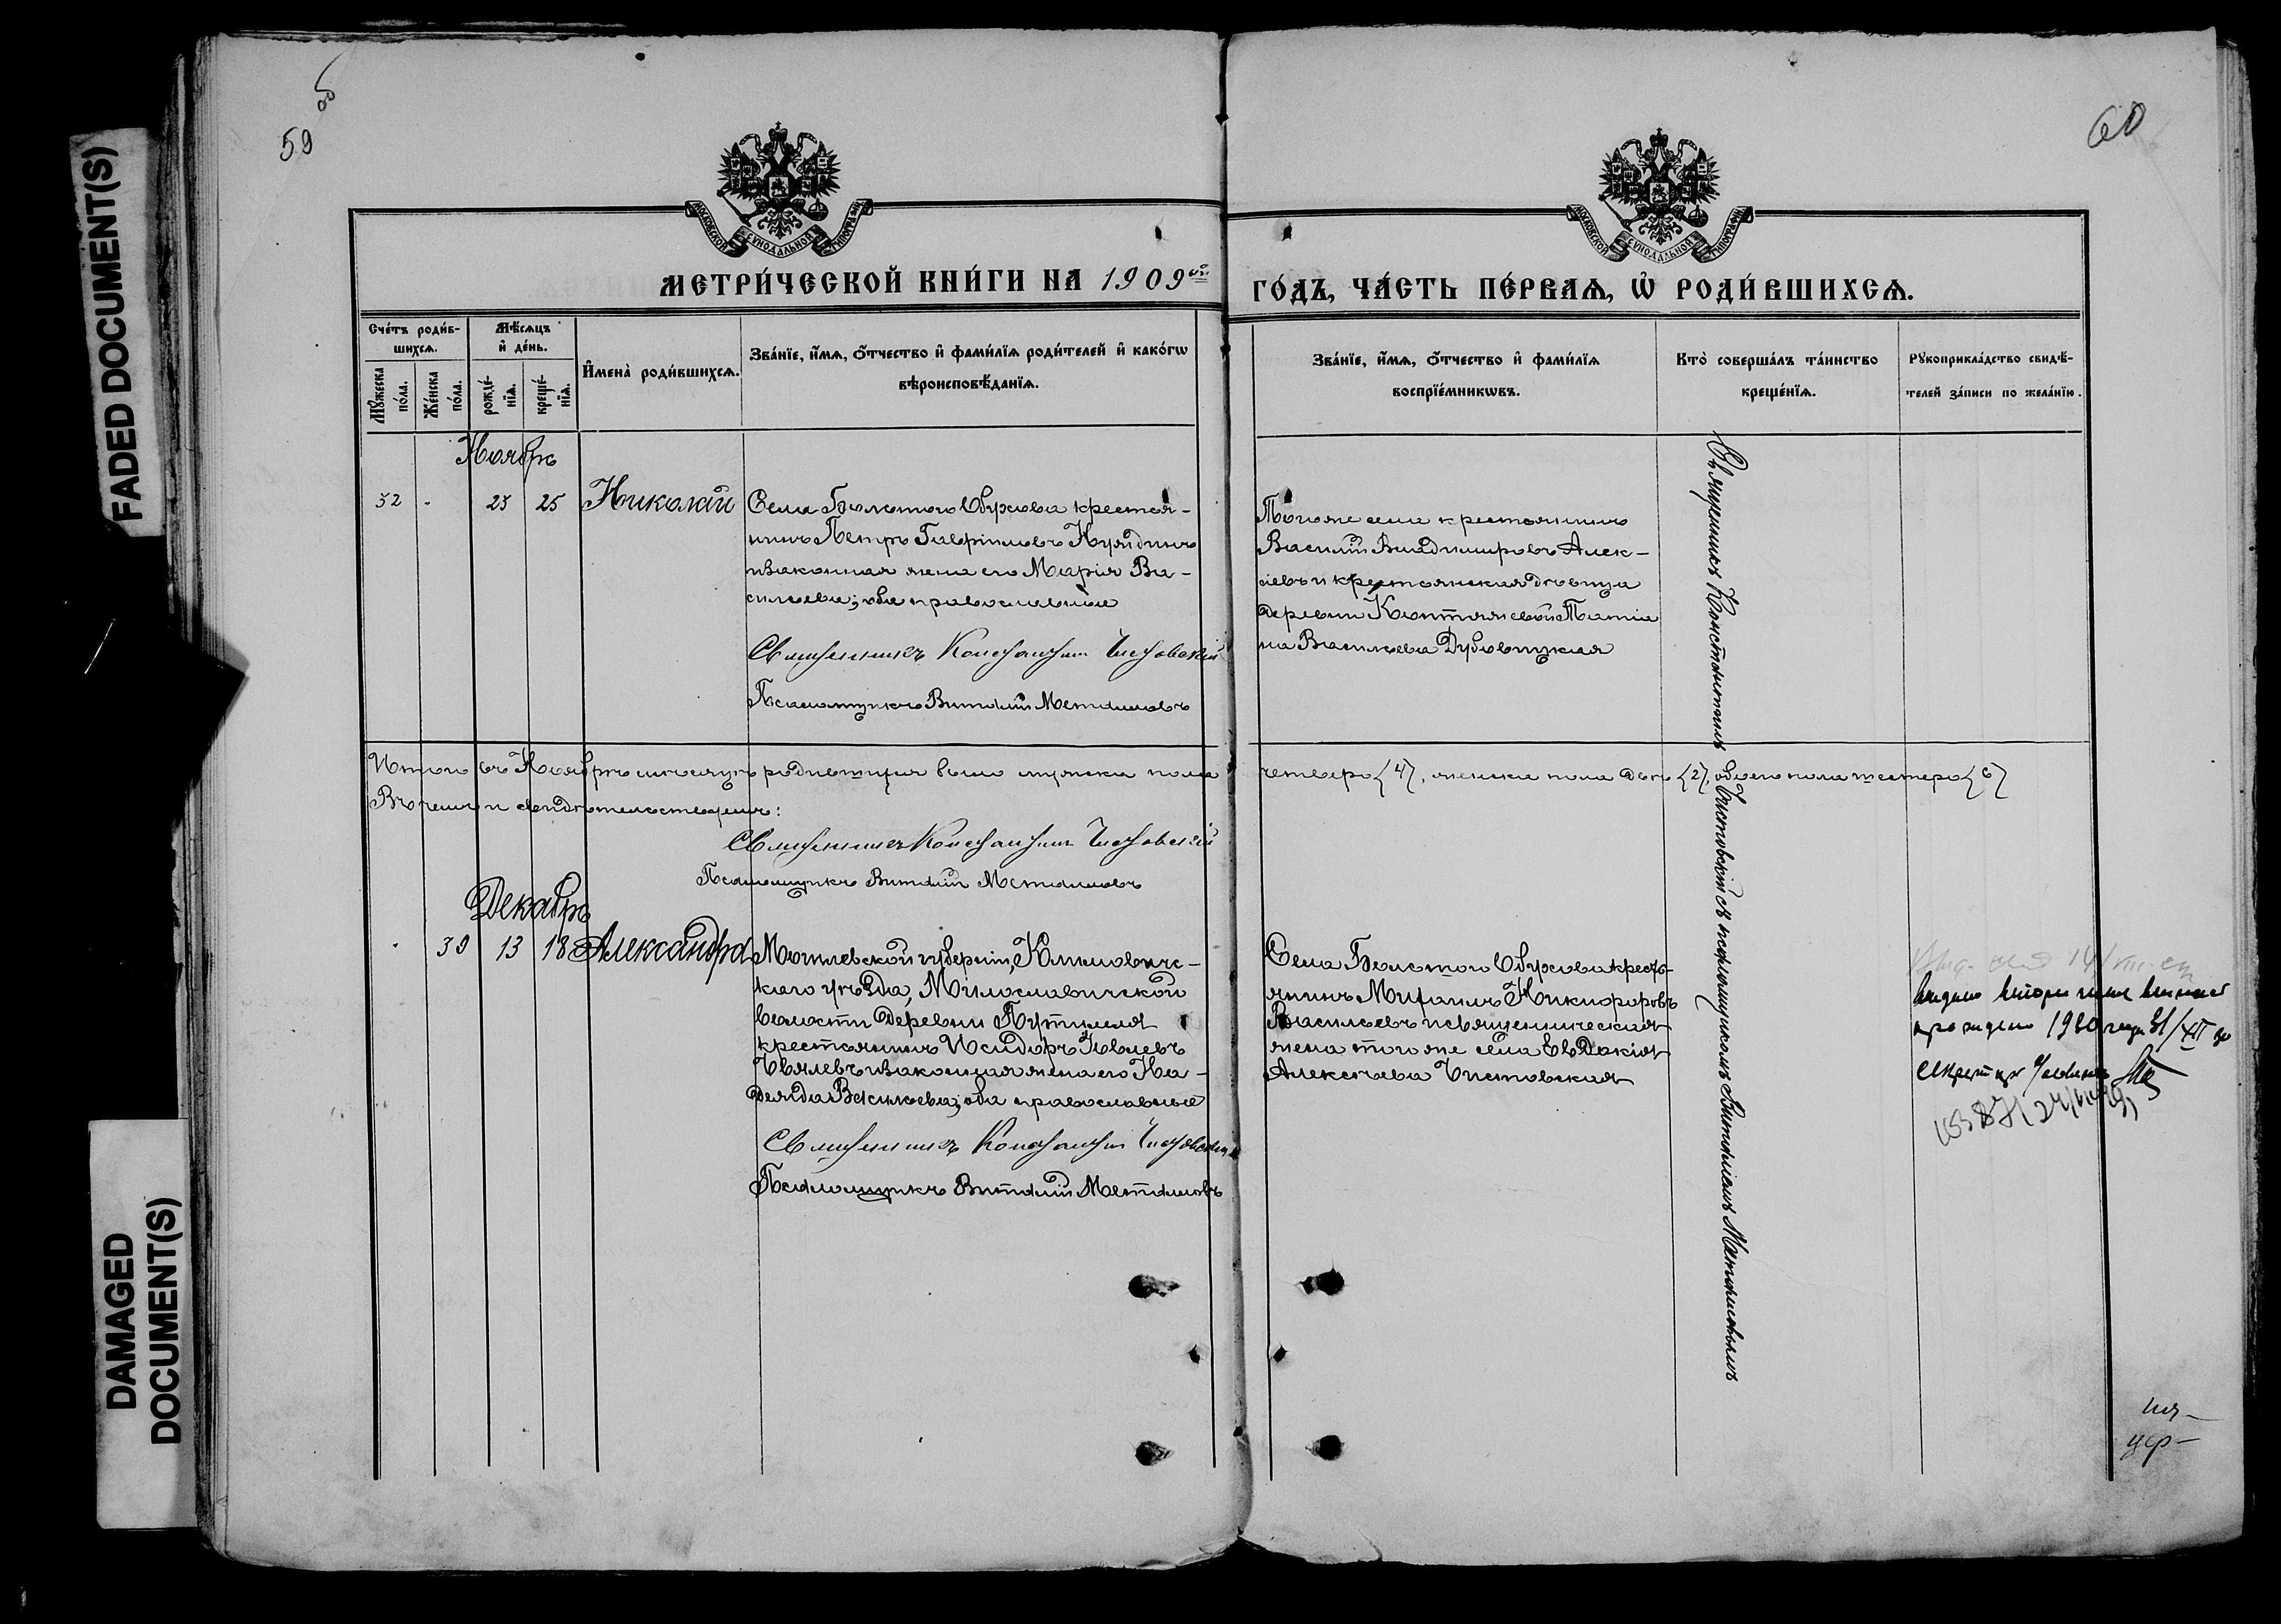 FADED DOCUMENT(S)
DAMAGED
DOCUMENT(S)
59 об
60
МОСКОВСКОЙ СѴНОДАЛЬНОЙ ТИПОГРАФІИ
МОСКОВСКОЙ СѴНОДАЛЬНОЙ ТИПОГРАФІИ
МЕТРИ́ЧЕСКОЙ КНИ́ГИ НА 1909ый
ГО́ДЪ, ЧА́СТЬ ПЕ́РВАѦ, Ѡ҆ РОДИ́ВШИХСѦ.
Сче́тъ роди́в-
шихсѧ.
Мꙋ́жеска
по́ла.
Же́нска
по́ла.
Мѣ́сѧцъ
и҆ де́нь.
рожде́-
нїѧ.
креще́-
нїѧ.
И҆мена̀ роди́вшихсѧ.
Зва́нїе, и҆́мѧ, ѻ҆́тчество и҆ фами́лїѧ роди́телей и҆ како́гѡ
вѣроисповѣ́данїѧ.
Зва́нїе, и҆́мѧ, ѻ҆́тчество и҆ фами́лїѧ
воспрїе́мникѡвъ.
Кто̀ соверша́лъ та́инство
креще́нїѧ.
Рꙋкоприкла́дство свидѣ́-
телей за́писи по жела́нїю.
Ноябрь
32 - 23 25 Николай
Села Болотого Обухова крестья-
нинъ Петръ Гавріиловъ
и законная жена его Марія Ва-
сильева; оба православные
Священникъ Константинъ Чистовскій
Псаломщикъ Виталій Металловъ
Того же села крестьянинъ
Василій Владимировъ Алек-
сѣевъ и крестьянская дѣвица
деревни Татіа
на Васильева Дубовицкая
Священникъ Константинъ Чистовскій съ псаломщикомъ Виталіемъ Металловымъ
Итого въ Ноябрѣ мѣсяцѣ родившихся было мужска пола четверо {4}, женска пола двѣ {2}, обоего пола шестеро {6}
Въ чемъ и свидѣтельствуемъ:
Священникъ Константинъ Чистовскій
Псаломщикъ Виталій Металловъ
Декабрь
- 39 13 18 Александра
Могилевской губерніи, Климович-
скаго уѣзда, Милославичской
волости деревни Путимля
крестьянинъ Исидоръ Іовлевъ
и законная жена его На-
дежда Васильева; оба православные
Священникъ Константинъ Чистовскій
Псаломщикъ Виталій Металловъ
Села Болотого Обухова кресть-
янинъ Михаилъ Никифоровъ
Васильевъ и священническая
жена того же села Евдокія
Алексѣева Чистовская